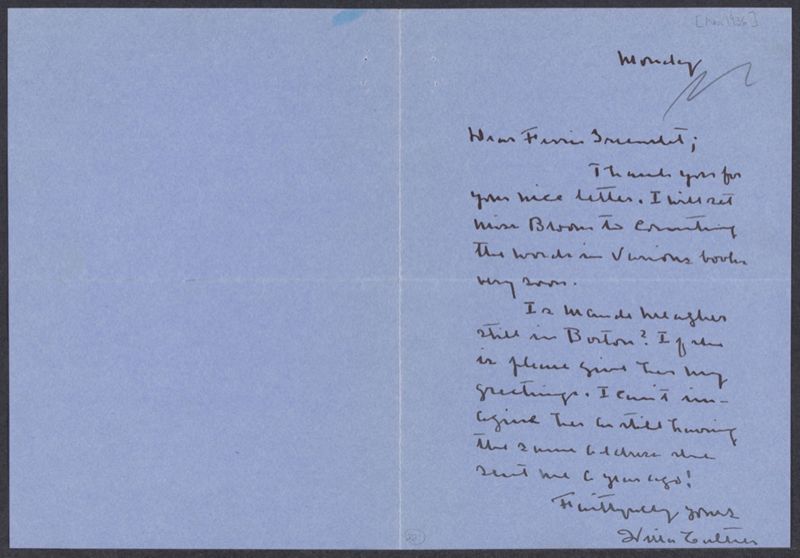 [Nov 1936]
Monday
Dear Ferris Greenslet;
Thank you for
your nice letter. I will set
Miss Bloom to counting
the words in various books
very soon.
Is Maude Meagher
still in Boston? If she
is please give her my
greetings. I can't im-
agine her as still having
the same address she
sent me a year ago!
Faithfully yours
Willa Cather